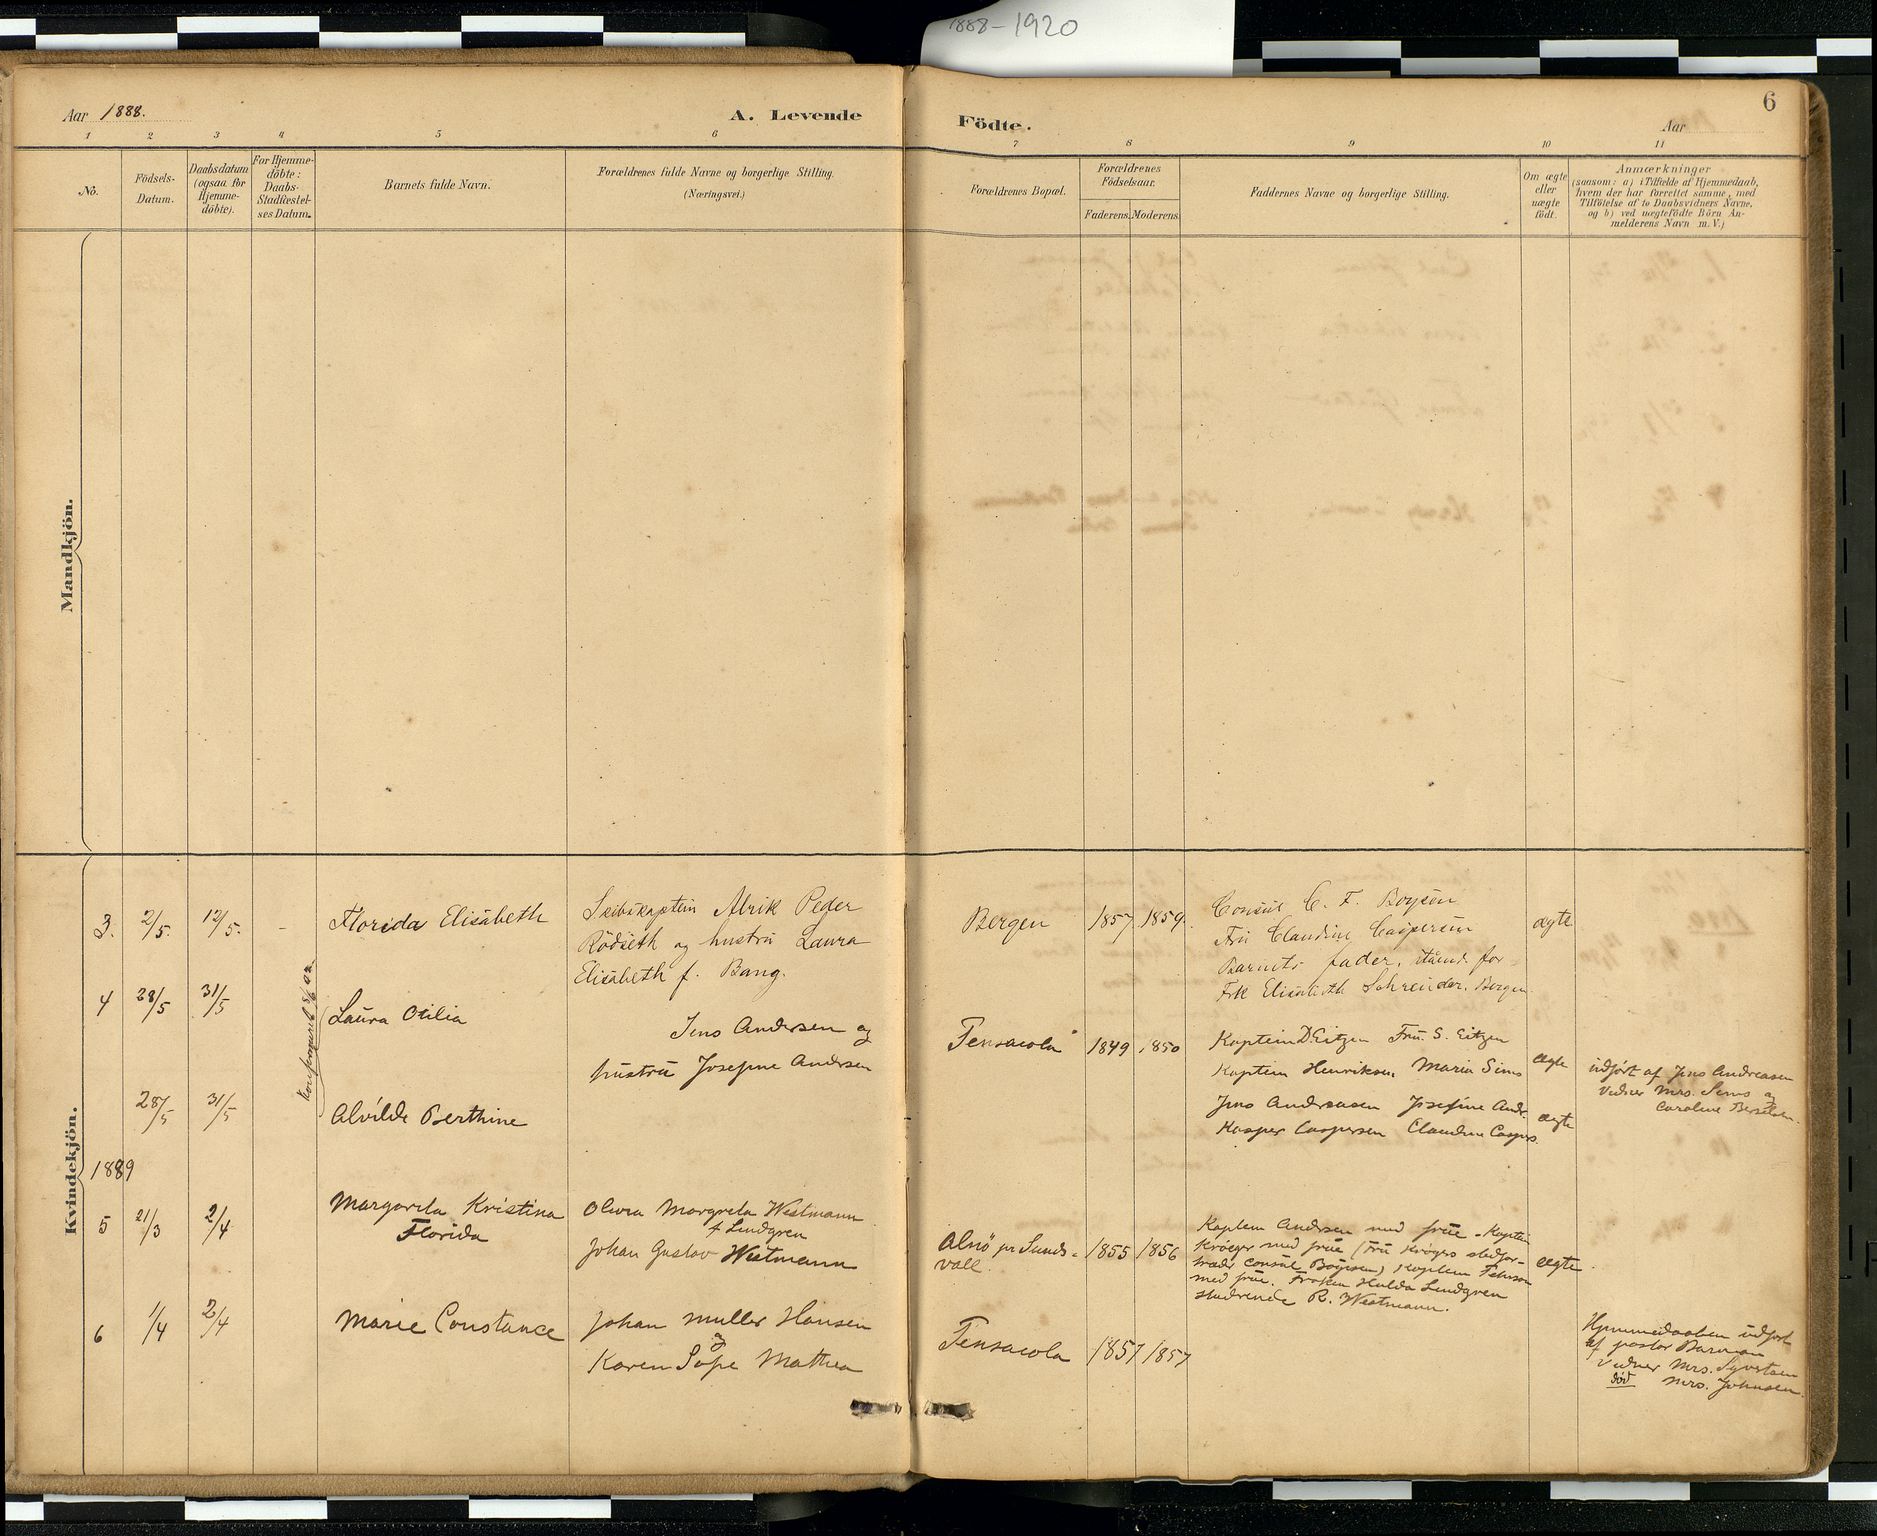 1888-1920
6
Aar 1888.
A. Levende
Födte.
Aar
1 2 3 4 5 6 7 8 9 10 11
No.
Födsels-
Datum.
Daabsdatum
(ogsaa for
Hjemme-
döbte).
For Hjemme-
döbte:
Daabs-
Stadfæstel-
ses Datum.
Barnets fulde Navn.
Forældrenes fulde Navne og borgerlige Stilling.
(Næringsvei.)
Forældrenes Bopæl.
Forældrenes
Födselsaar.
Faderens. Moderens.
Faddernes Navne og borgerlige Stilling.
Om ægte
eller
uægte
födt.
Anmærkninger
(saasom: a) i Tilfælde af Hjemmedaab,
hvem der har forrettet samme, med
Tilföielse af to Daabsvidners Navne,
og b) ved uægtefödte Börn An-
melderens Navn m. V.)
Mandkjön.
Kvindekjön.
3. 2/5. 12/5. -
Florida Elisabeth
Skibskaptein Alrik Peder
Rödseth og hustru Laura
Elisabeth f. Bang.
Bergen
1857 1859.
Consul C. F. Boysen
Fru Claudine Caspersen
Barnets fader, staaende for
Frk Elisabeth Schreuder, Bergen
ægte
4 28/5 31/5
Laura Otilia
Jens Andersen og
hustru Josefine Andersen
Pensacola
1849 1850
Kaptein D Eitzen Fru S. Eitzen
Kaptein Henriksen, Maria Sims
ægte
udført af Jens Andreasen
Vidner Mrs. Sims og
Caroline
28/5 31/5
Alvilde Berthine
Jens Andreasen Josefine Andr.
Kasper Caspersen Claudine Caspers.
ægte
1889
5 21/3 2/4
Margareta Kristina
Florida
Olivia Margreta Westmann
f Lindgren
Johan Gustav Westmann
Alnö pr Sunds-
vall.
1855 1856
Kaptein Andersen med frue - Kaptein
Kröger med frue (Fru Krögers stedfor-
træder, consul Boysen) Kaptein Pehrson
med frue. Frøken Hulda Lindgren
studerende R. Westmann.
ægte
6 1/4 2/4
Marie Constance
Johan Muller Hansen
og
Karen Sofie Mathea
Pensacola
1857 1857
Hjemmedaaben udført
af pastor
Vidner Mrs. Syvertsen
død Mrs. Johnsen.